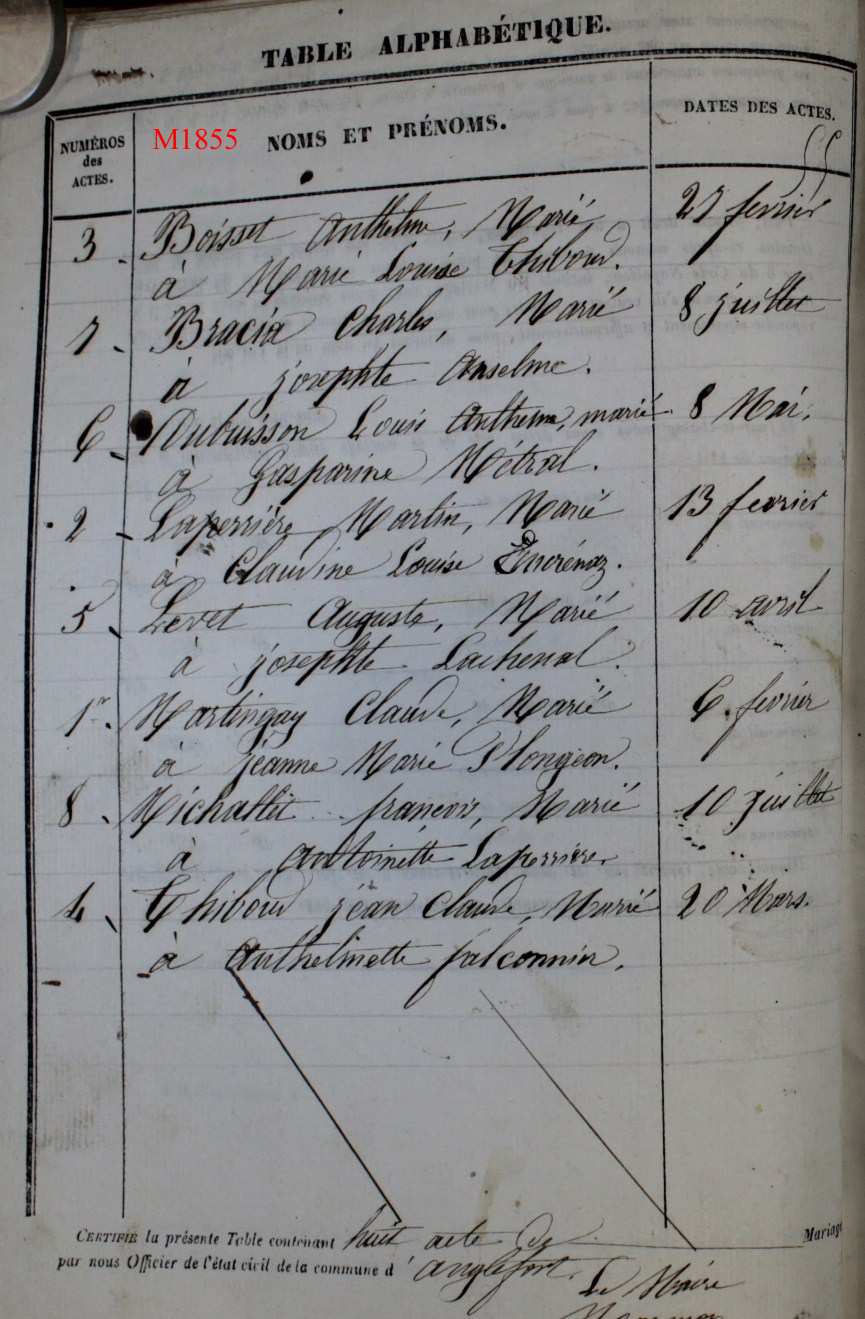 TABLE ALPHABÉTIQUE.
NUMÉROS des ACTES.
M1855 NOMS ET PRÉNOMS.
DATES DES ACTES.
3. Boisset Anthelme, Marié 27 fevrier
à Marie Louise Thiboud.
7. Bracia Charles, Marié 8 juillet
à josephte Anselme.
6. Dubuisson Louis Anthelme, marié 8 Mai.
à Gasparine Métral.
2. Laperrière Martin, Marié 13 fevrier
à Claudine Louise Encrénaz.
5. Levet Auguste, Marié 10 avril
à josephte Lachenal.
1er. Martingay Claude, Marié 6. fevrier
à jeanne Marie Plongeon.
8. Michallet françois, Marié 10 juillet
à Antoinette Laperrière
4. Thiboud jean Claude, Marié 20 Mars.
à Anthelmette falconnier.
CERTIFIÉ la présente Table contenant huit acte de Mariage
par nous Officier de l'état civil de la commune d' anglefort.
Le Maire